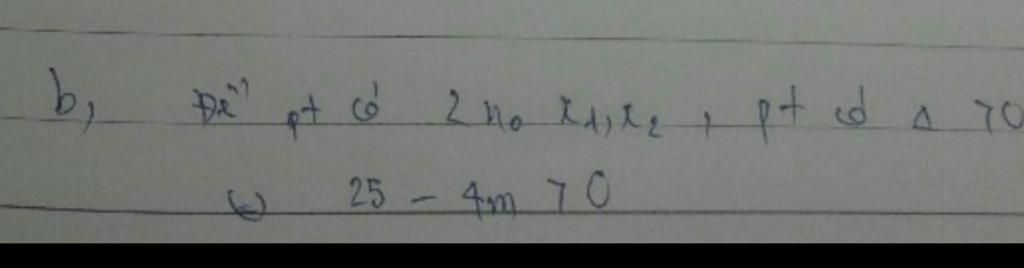 b, Để pt có 2 n0 x1, x2, pt có Δ > 0
(=) 25 - 4m > 0